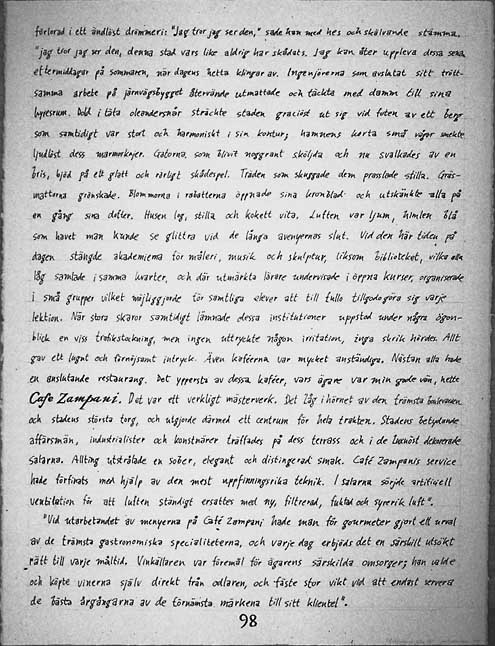 förlorad i ett ändlöst drömmeri: "Jag tror jag ser den," sade han med hes och skälvande stämma.
"jag tror jag ser den, denna stad vars like aldrig har skådats. Jag kan åter uppleva dessa sena
eftermiddagar på sommaren, när dagens hetta klingar av. Ingenjörerna som avslutat sitt trött-
samma arbete på järnvägsbygget återvände utmattade och täckta med damm till sina
hyresrum. Dold i täta oleandersnår sträckte staden graciöst ut sig vid foten av ett berg
som samtidigt var stort och harmoniskt i sin kontur; hamnens korta små vågor smekte
ljudlöst dess marmorkajer. Gatorna, som blivit noggrant sköljda och nu svalkades av en
bris, bjöd på ett glatt och rörligt skådespel. Träden som skuggade dem prasslade stilla. Gräs-
mattorna grönskade. Blommorna i rabatterna öppnade sina kronblad och utskänkte alla på
en gång sina dofter. Husen log, stilla och kokett vita. Luften var ljum, himlen blå
som havet man kunde se glittra vid de långa avenyernas slut. Vid den här tiden på
dagen stängde akademierna för måleri, musik och skulptur, liksom biblioteket, vilka alla
låg samlade i samma kvarter, och där utmärkta lärare undervisade i öppna kurser, organiserade
i små grupper vilket möjliggjorde för samtliga elever att till fullo tillgodogöra sig varje
lektion. När stora skaror samtidigt lämnade dessa institutioner uppstod under några ögon-
blick en viss trafikstockning, men ingen uttryckte någon irritation, inga skrik hördes. Allt
gav ett lugnt och förnöjsamt intryck. Även kaféerna var mycket anständiga. Nästan alla hade
en anslutande restaurang. Det yppersta av dessa kaféer, vars ägare var min gode vän, hette
Café Zampani. Det var ett verkligt mästerverk. Det låg i hörnet av den främsta boulevarden
och stadens största torg, och utgjorde därmed ett centrum för hela trakten. Stadens betydande
affärsmän, industrialister och konstnärer träffades på dess terrass och i de luxuöst dekorerade
salarna. Allting utstrålade en sober, elegant och distingerad smak. Café Zampanis service
hade förfinats med hjälp av den mest uppfinningsrika teknik. I salarna sörjde artificiell
ventilation för att luften ständigt ersattes med ny, filtrerad, fuktad och syrerik luft".
"Vid utarbetandet av menyerna på Café Zampani hade man för gourmeter gjort ett urval
av de främsta gastronomiska specialiteterna, och varje dag erbjöds det en särskilt utsökt
rätt till varje måltid. Vinkällaren var föremål för ägarens särskilda omsorger; han valde
och köpte vinerna själv direkt från odlaren, och fäste stor vikt vid att endast servera
de bästa årgångarna av de förnämsta märkena till sitt klientel".
98